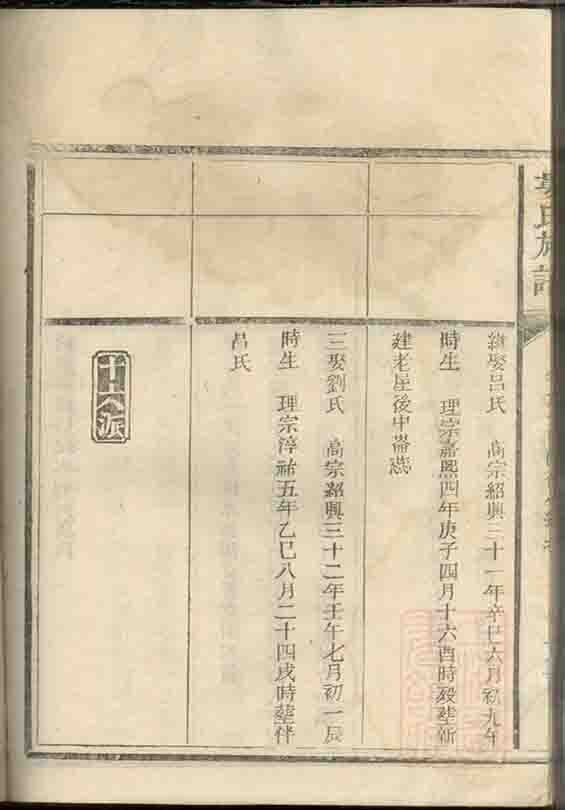 氏族譜
繼娶呂氏　高宗紹興三十一年辛巳六月初九午
時生　理宗嘉熙四年庚子四月十六酉時歿塟新
建老屋後中崙㷀
三娶劉氏　高宗紹興三十二年壬午七月初一辰
時生　理宗淳祐五年乙巳八月二十四戌時塟伴
呂氏
十六派